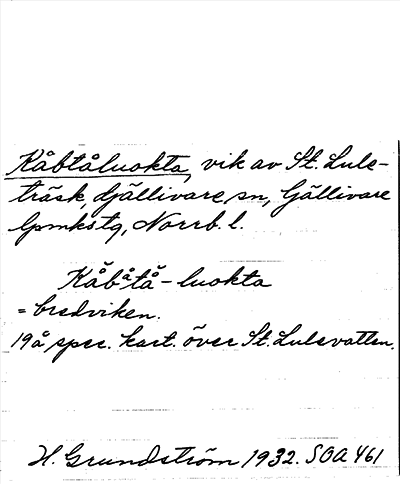 Kåbtåluokta, vik av St. Lule-
träsk, Gällivare sn, Gällivare
lpmkstg, Norrb. l.
Kåbåtå-luokta
= bredviken.
19å spec. kart. över St. Lulevatten.
H. Grundström 1932. SOA 461